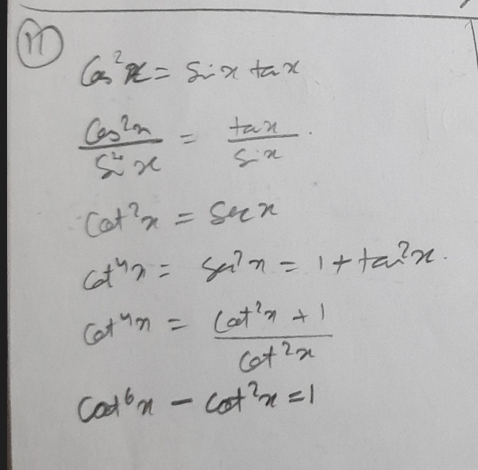 17
Cos²x = Sin x tan x
Cos²x / Sin²x = tan x / Sin x.
Cot²x = Sec x
Cot⁴x = Sec²x = 1 + tan²x.
Cot⁴x = Cot²x + 1 / Cot²x
Cot⁶x - Cot²x = 1